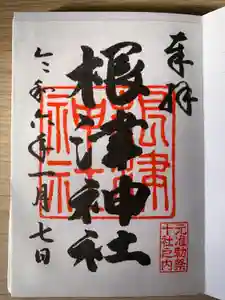 奉拝
根津神社
令和六年一月七日
根津神社
元准勅祭十社之内